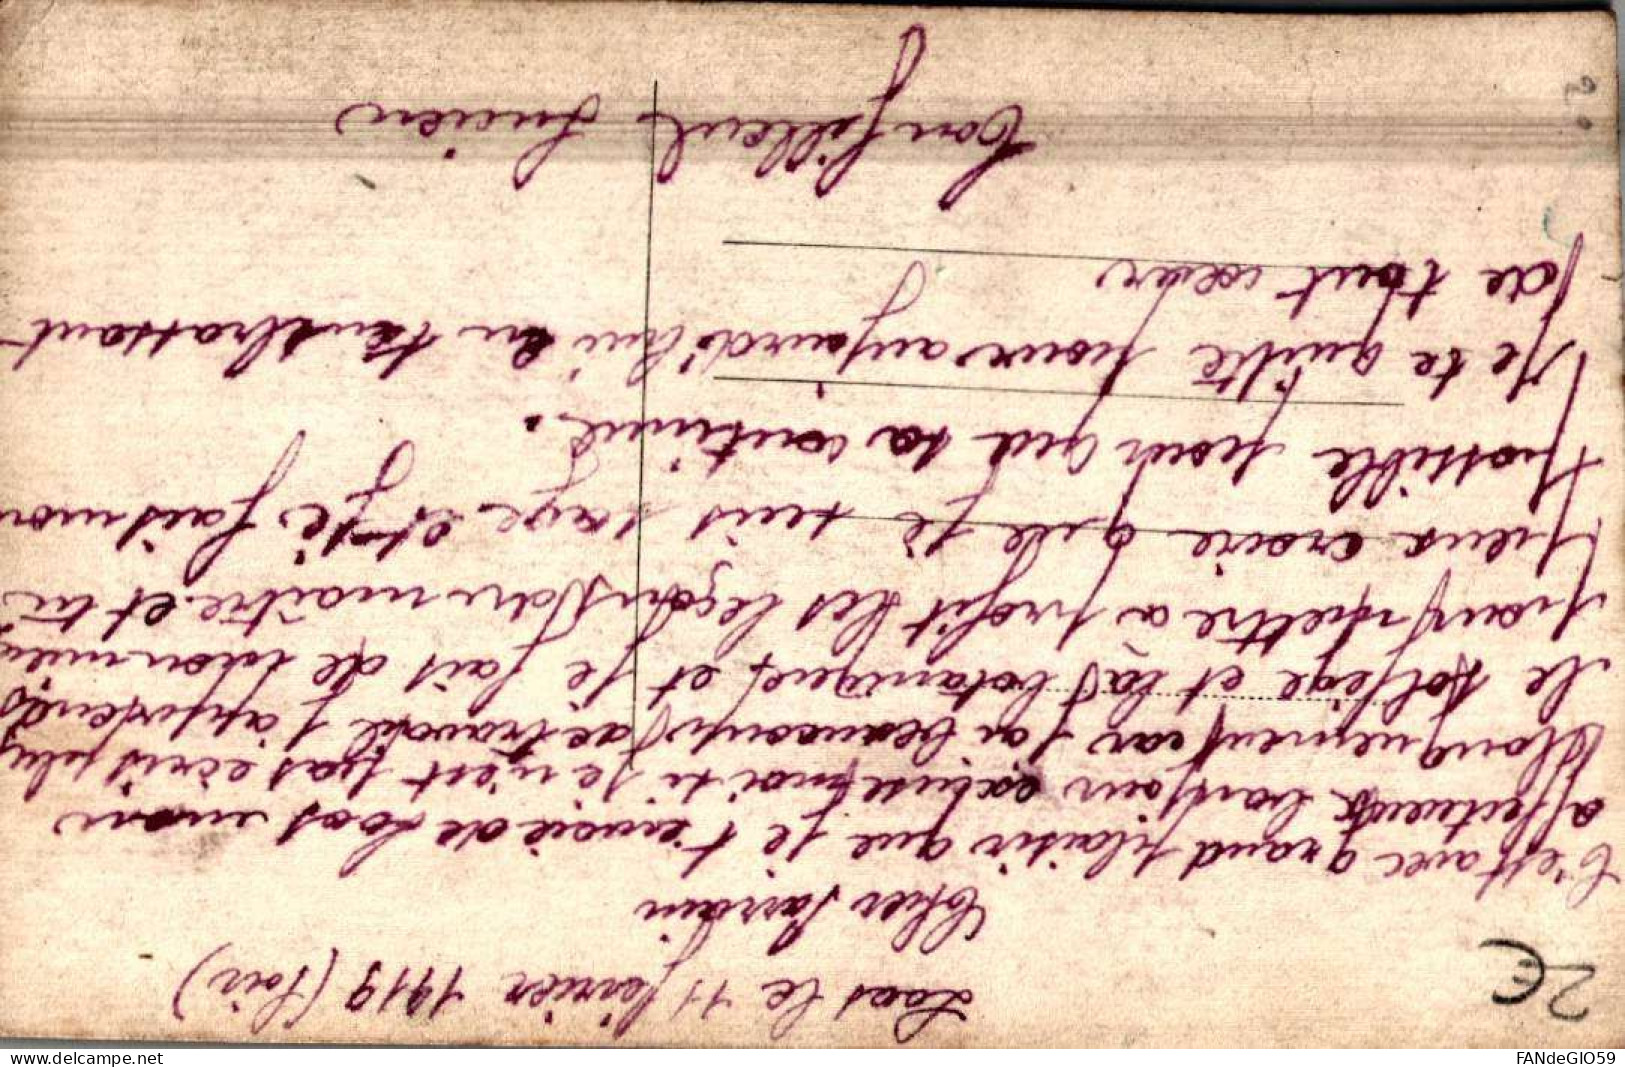 Loos le 11 février 1919 (soir)
Cher Parrain
C'est avec grand plaisir que je t'envoie de Loos mon
affectueux bonjour excuse moi si je n'est pas écris plus
longuement car j'ai beaucoup de travail j'apprends
le solfège et la botanique et je fait de mon mieu
pour mettre à profit les leçons du maître et tu
peux croire que je suis sage et je fais mon
possible pour que sa continue.
Je te quitte pour aujourd'hui en t'embrassant
de tout cœur
Ton filleul Lucien
2€
www.delcampe.net
FANdeGIO59